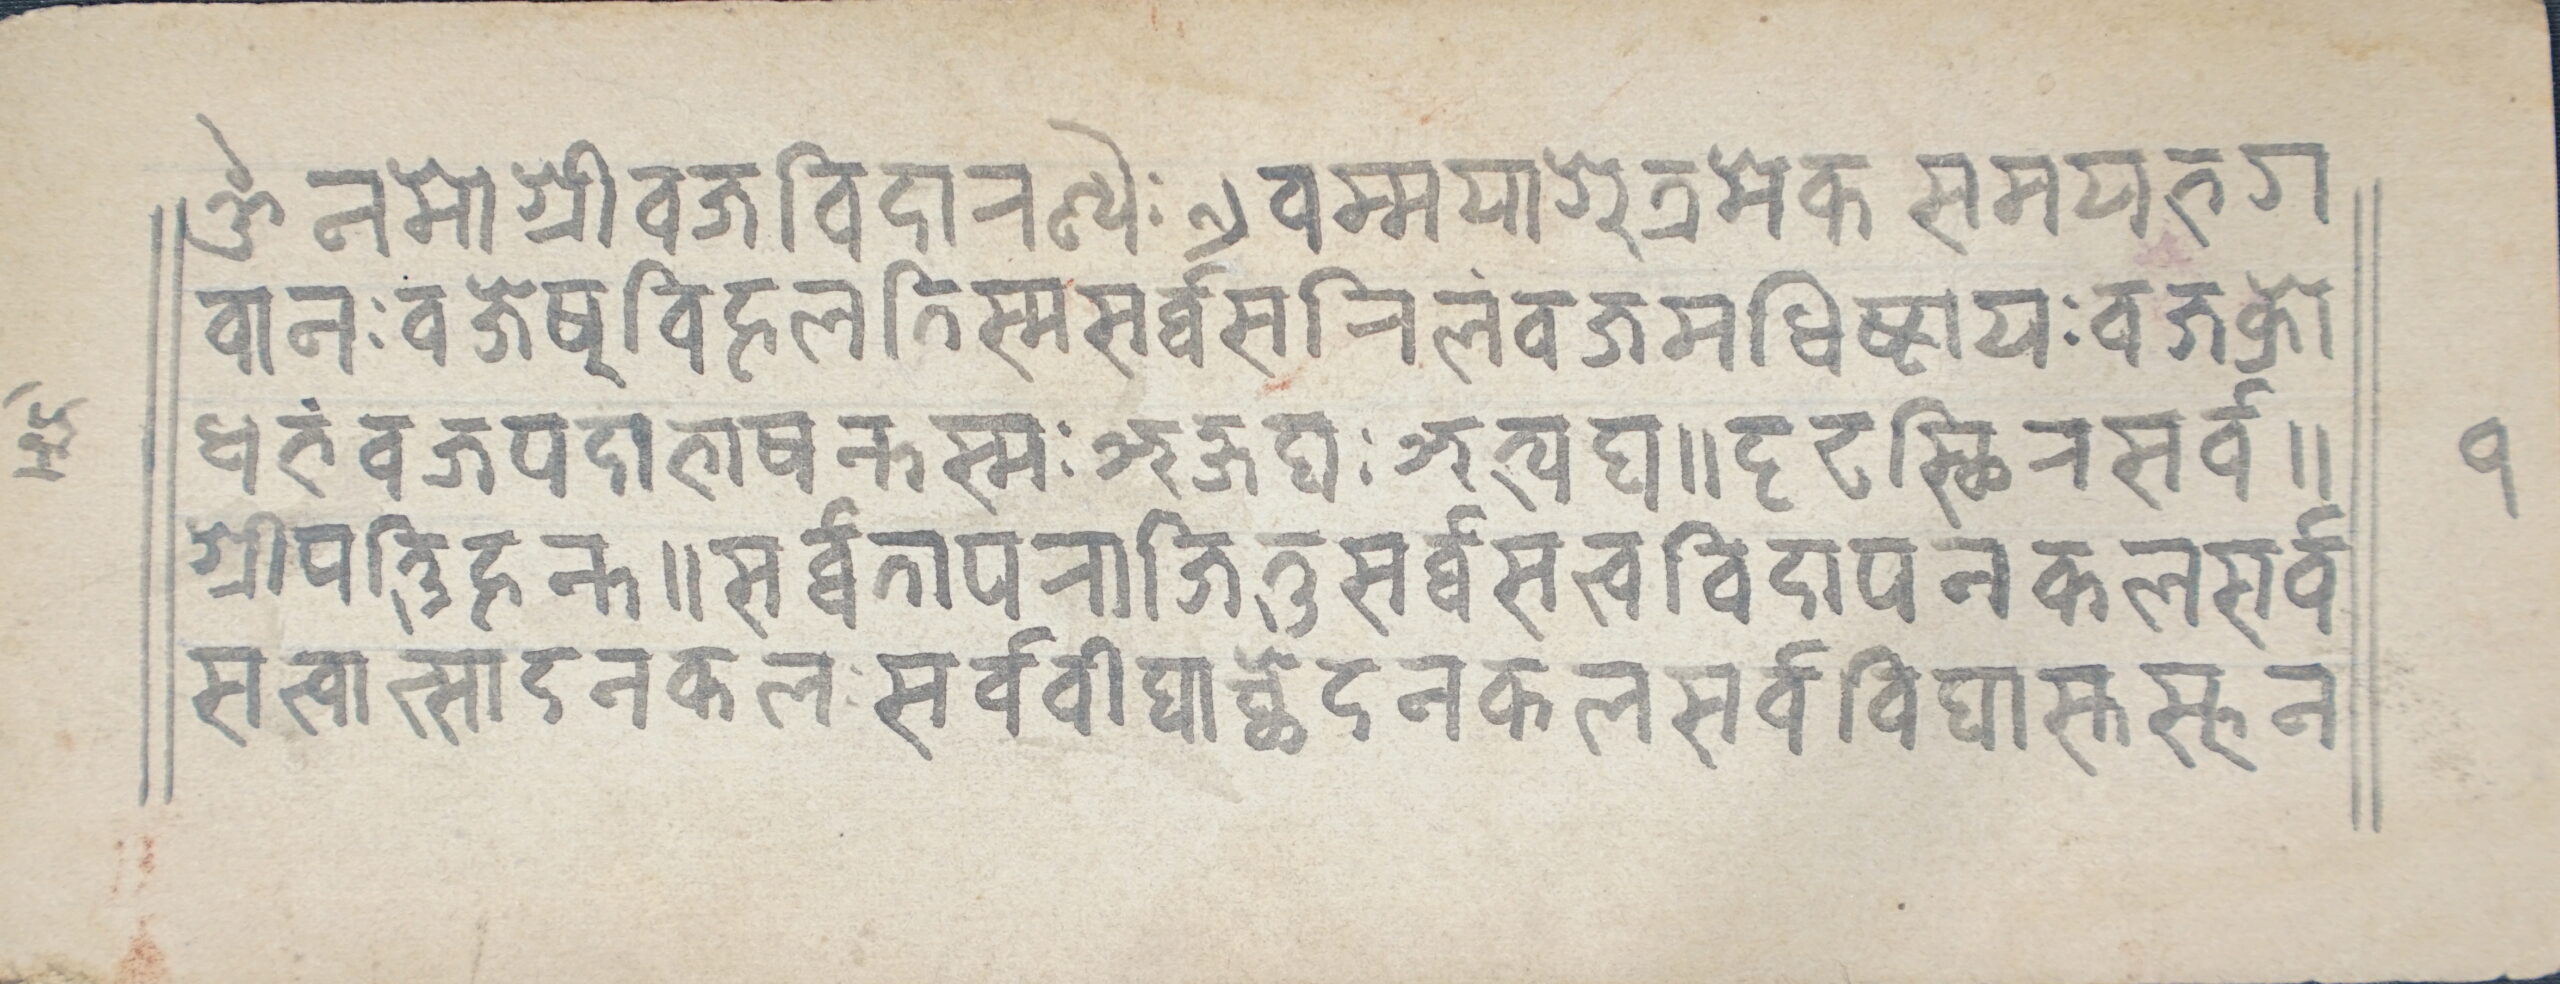 ॐ नमो श्रीवज्रविदारण्यैः ॥ एवम्मयाश्रुत्रमेक समयभग
वानः वज्रेषु विहलतिस्म सर्व्वसनिलंवज्रमधिष्ठायः वज्रक्रो
धभंवज्रपदाभाषन्तस्मः अज्रद्यः अत्यद्य॥ दृढस्छिनसर्व॥
श्रीपत्तिहन्त॥ सर्व्वतापराजितुसर्व्वसत्त्वविदापनकलसर्व
सत्त्वात्सादनकलः सर्ववीद्याच्छेदनकलसर्वविद्यास्तम्भन
१